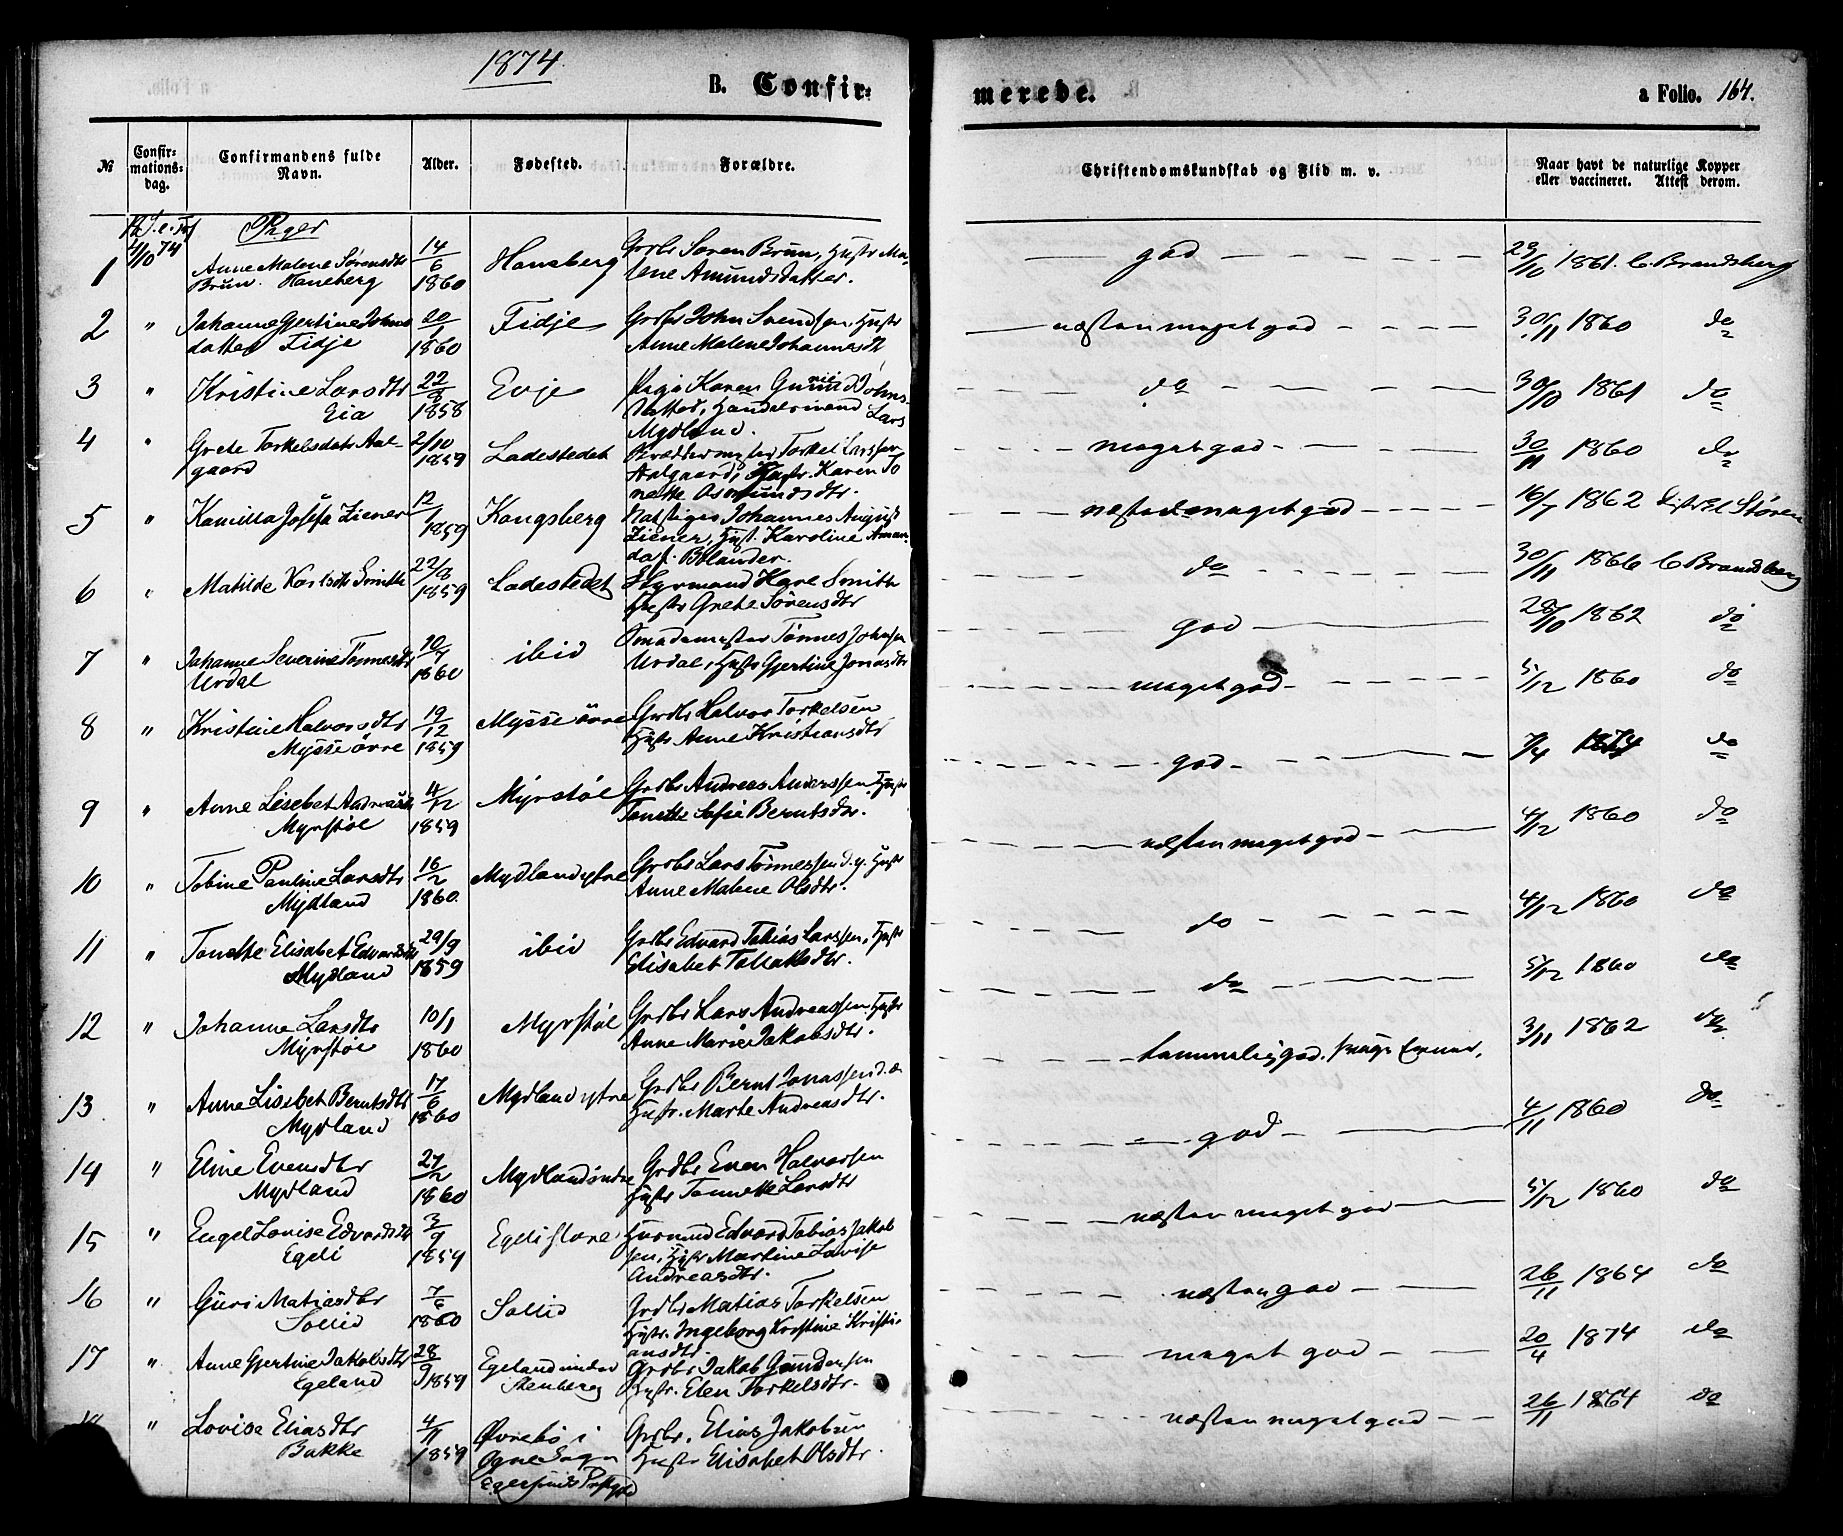 1874.
B. Confir=
merede.
a Folio. 164.
№
Confir=
mations=
dag.
Confirmandens fulde
Navn.
Alder.
Fødested.
Forældre.
Christendomskundskab og Flid m. v.
Naar havt de naturlige Kopper
eller vaccineret. Attest derom.
Piger
1 4/10 74 Anne Malene Sørensdtr
Brun. Haneberg
14/6
1860
Haneberg
Grdbr Søren Brun, Hustr Ma-
lene Amundsdatter.
god
29/10 1861. C. Brandsberg
2 " Johanne Gjertine Johns
datter Fidje
20/1
1860
Fidje
Grdbr John Svendsen, Hustr
Anne Malene Johannesdtr
næsten meget god
30/11 1860 do
3 " Kristine Larsdtr
Eia
22/8
1858
Evje
Pige Karen Johns-
datter, Handelsmand Lars
Mydland.
do
30/10 1861 do
4 " Grete Torkelsdatr Aal-
gaard
2/10
1859
Ladestedet
Torkel Larssen
Aalgaard, Hustr. Karen To
nette Osmundsdtr.
meget god
30/11 1860 do
5 " Kamilla Josefa Ziener
12/1
1859
Kongsberg
Johannes August
Ziener, Hust. Karoline Aman-
da f. Bolander.
næsten meget god
16/7 1862 Støren
6 " Matilde Karlsdtr Smith
22/8
1859
Ladestedet
Styrmand Karl Smith
Hustr Grete Sørensdtr
do
30/11 1866 C Brandsberg
7 " Johanne Severine Tønnesdtr
Urdal
10/7
1860
ibid
Smedemester Tønnes Johnsen
Urdal, Hustr Gjertine Jonasdtr
god
28/10 1862 do
8 " Kristine Halvorsdtr
Mysse øvre
19/12
1859
Mysse øvre
Grdbr Halvor Torkelsen
Hustr Anne Kristiansdtr
meget god
5/12 1860 do
9 " Anne Lisebet Andreasdtr
Myrstøl
4/12
1859
Myrstøl
Grdbr Andreas Anderssen, Hustr
Tonette Sofie Berntsdtr.
god
7/4 1874 do
10 " Tobine Pauline Larsdtr
Mydland
16/2
1860.
Mydland ytre
Grdbr Lars Tønnessen d.y. Hustr
Anne Malene Olsdtr.
næsten meget god
4/12 1860 do
11 " Tonette Elisabet Edvardsdtr
Mydland
29/9
1859
ibid
Grdbr Edvard Tobias Larssen, Hustr
Elisabet Tollaksdtr.
do
4/12 1860 do
12 " Johanne Larsdtr
Myrstøl
10/1
1860
Myrstøl
Grdbr Lars Andreassen, Hustr
Anne Marie Jakobsdtr.
do
5/12 1860 do
13 " Anne Lisebet Berntsdtr
Mydland
17/6
1860
Mydland ytre
Grdbr Bernt Jonassen d. æ
Hustr. Marte Andreasdtr.
temmelig god, svage Evner.
3/11 1862 do
14 " Eline Evensdtr
Mydland
27/2
1860
Mydland indre
Grdbr Even Halvorsen
Hustr Tonnette Larsdtr
god
4/11 1860 do
15 " Engel Lovise Edvardsdtr
Egeli
3/9
1859
Egeli store
Husmand Edvard Tobias Jakob
sen, Hustr Martine Lovise
Andreasdtr.
næsten meget god
5/12 1860 do
16 " Guri Matiasdtr
Sollid
7/6
1860
Sollid
Grdbr Matias Torkelsen
Hustr. Ingeborg Kristine Kristi-
ansdtr.
næsten god
26/11 1864 do
17 " Anne Gjertine Jakobsdtr
Egeland
28/9 1859
Egeland under
Stenberg
Grdbr Jakob Gundersen
Hustr. Elen Torkelsdtr.
meget god
20/4 1874 do
" Lovise Eliasdtr
Bakke
4/11
1859
Øvrebø i
Ogne Sogn
Egersunds Prstgjld
Grdbr. Elias Jakobsen
Hustr Elisabet Olsdtr.
næsten meget god
26/11 1864 do